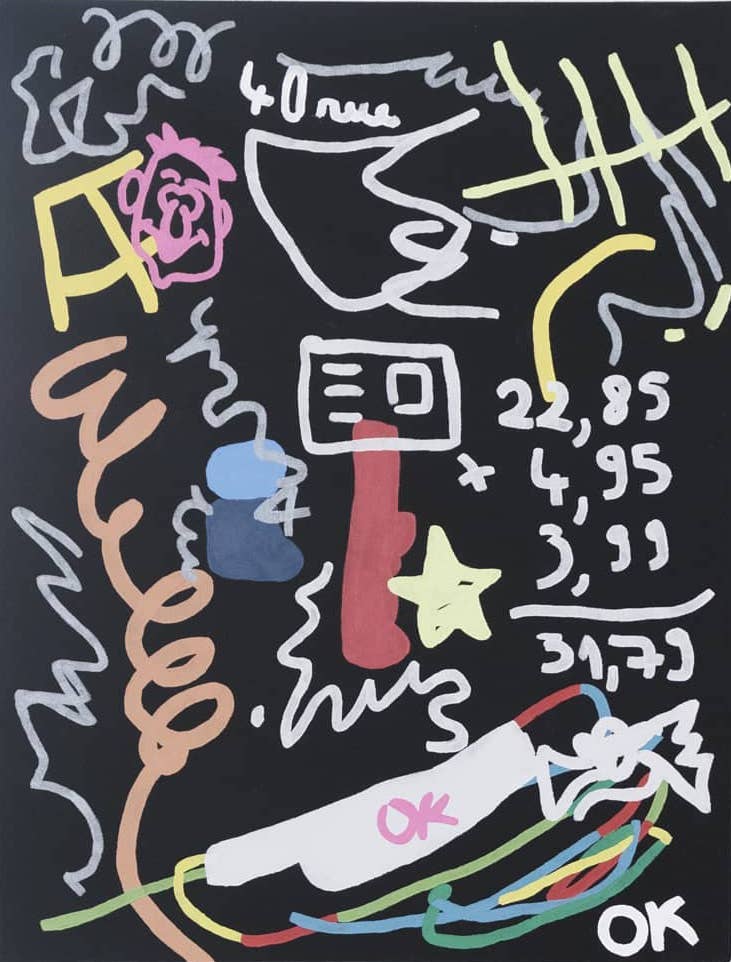 40 rue
22,85
+ 4,95
4
3,99
31,79
OK
OK